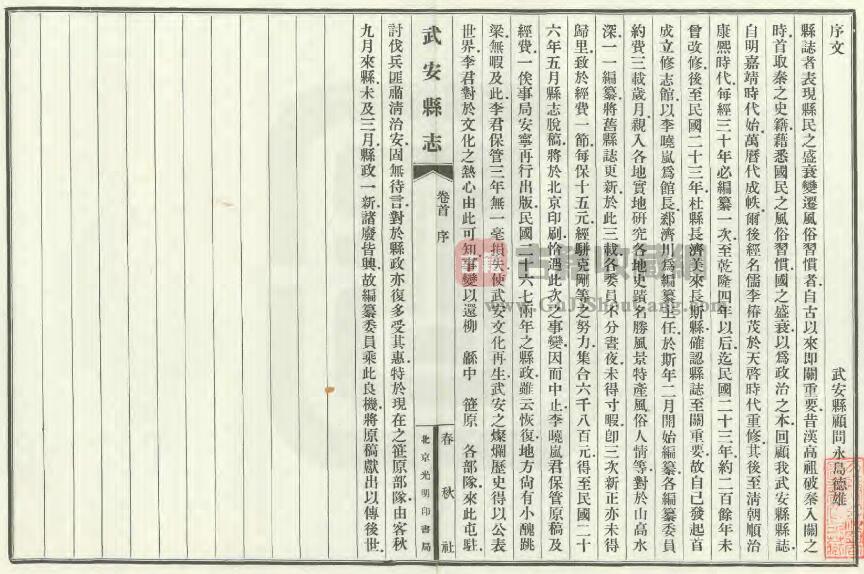 序文
武安縣顧問永島德雄
縣誌者表現縣民之盛衰變遷風俗習慣者自古以來即關重要昔漢高祖破秦入關之
時首取秦之史籍藉悉國民之風俗習慣國之盛衰以爲政治之本回顧我武安縣縣誌
自明嘉靖時代始萬曆代成帙爾後經名儒李椿茂於天啓時代重修其後至清朝順治
康熙時代每經三十年必編纂一次至乾隆四年以后迄民國二十三年約二百餘年未
曾改修後至民國二十三年杜縣長濟美來長斯縣確認縣誌至關重要故自己發起首
成立修志館以李曉嵐爲館長郄濟川爲編纂主任於斯年二月開始編纂各編纂委員
約費三載歲月親入各地實地研究各地史蹟名勝風景特產風俗人情等對於山高水
深一一編纂將舊縣誌更新於此三載各委員不分晝夜未得寸暇卽三次新正亦未得
歸里致於經費一節每保十五元經駢克剛等之努力集合六千八百元得至民國二十
六年五月縣志脫稿將於北京印刷恰遇此次之事變因而中止李曉嵐君保管原稿及
經費一俟事局安寧再行出版民國二十六七兩年之縣政雖云恢復地方尙有小醜跳
梁無暇及此李君保管三年無一毫損失使武安文化再生武安之燦爛歷史得以公表
世界李君對於文化之熱心由此可知事變以還柳 緜中 笹原 各部隊來此屯駐
武安縣志
卷首 序
春秋社
北京光明印書局
討伐兵匪肅淸治安固無待言對於縣政亦復多受其惠特於現在之笹原部隊由客秋
九月來縣未及三月縣政一新諸廢皆興故編纂委員乘此良機將原稿獻出以傳後世
古籍收藏網
www.GuJiShouCang.com